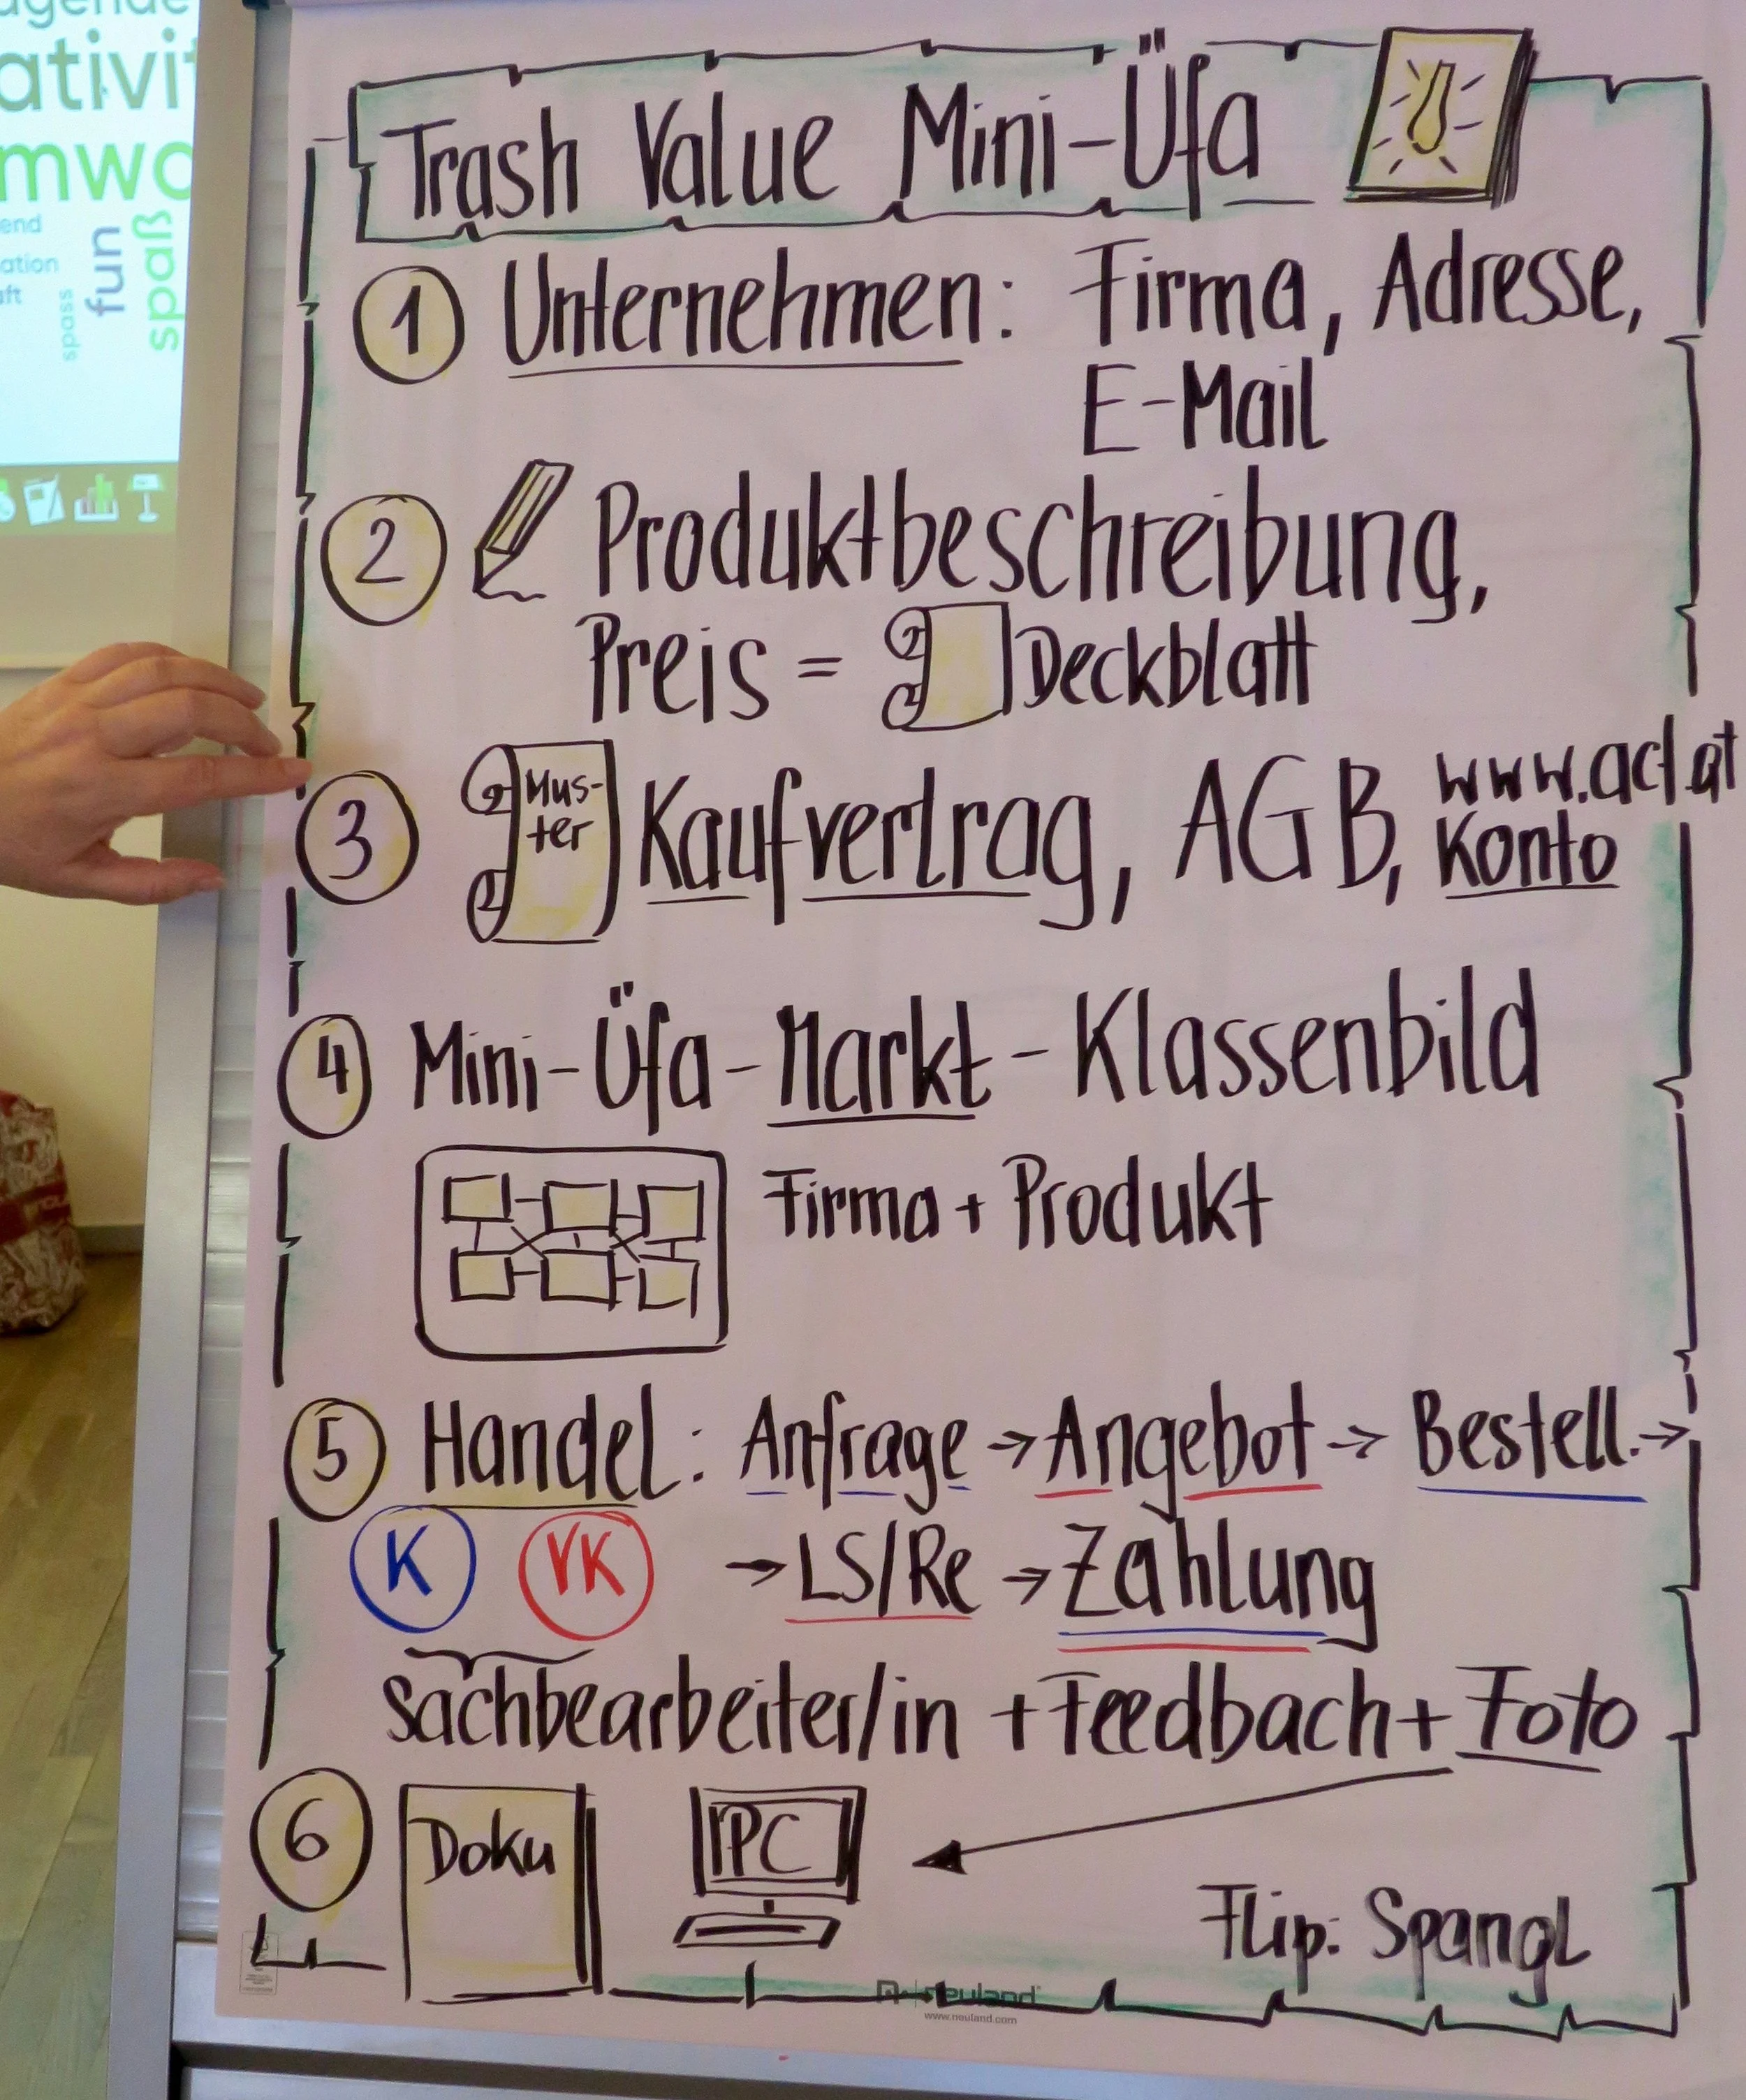 ativi
mwo
end
ation
ft
spass
fun
spaß
Trash Value Mini-Üfa
1 Unternehmen: Firma, Adresse,
E-Mail
2 Produktbeschreibung,
Preis = Deckblatt
3 Mus-
ter
Kaufvertrag, AGB, www.act.at
Konto
4 Mini-Üfa-Markt-Klassenbild
Firma + Produkt
5 Handel: Anfrage → Angebot → Bestell. →
K VK → LS/Re → Zahlung
Sachbearbeiter/in + Feedbach + Foto
6 Doku PC
Flip: Spangl
neuland
www.neuland.com